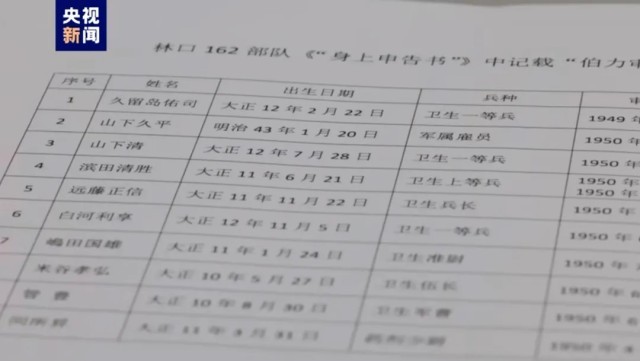 央视
新闻
林口 162 部队《“身上申告书”》中记载“伯力审
序号 姓名 出生日期 兵种
1 久留岛佑司 大正 12 年 2 月 22 日 卫生一等兵 1949 年
2 山下久平 明治 43 年 1 月 20 日 军属雇员 1950 年
3 山下清 大正 12 年 7 月 28 日 卫生一等兵 1950 年
1950 年
4 滨田清胜 大正 11 年 6 月 21 日 卫生上等兵 1950 年
5 远藤正信 大正 11 年 11 月 22 日 卫生兵长 1950 年
6 白河利享 大正 12 年 11 月 5 日 卫生一等兵 1950 年
7 嶋田国雄 大正 11 年 1 月 24 日 卫生准尉 1950 年
米谷孝弘 大正 10 年 5 月 27 日 卫生伍长 1950 年
曹 大正 10 年 8 月 30 日 卫生军曹 1950 年
大正 11 年 3 月 31 日